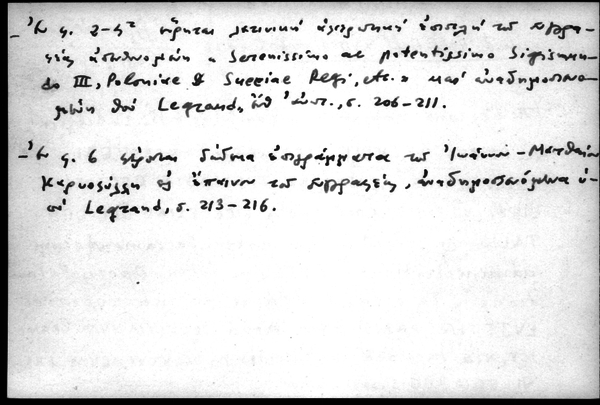 – Ἐν φ. 2–4² φέρεται λατινικὴ ἀφιερωτικὴ ἐπιστολὴ τοῦ συγγρα-
φέως ἀπευθυνομένη « Serenissimo ac potentissimo Sigismun-
do III, Poloniae & Sueciae Regi, etc. » καὶ ἀναδημοσιευο-
μένη ὑπὸ Legrand, ἔνθ' ἀνωτ., σ. 206–211.
– Ἐν φ. 6 φέρονται ἐπιγράμματα τοῦ Ἰωάννου – Ματθαίου
Καρυοφύλλη εἰς ἔπαινον τοῦ συγγραφέως, ἀναδημοσιευόμενα ὑ-
πὸ Legrand, σ. 213–216.